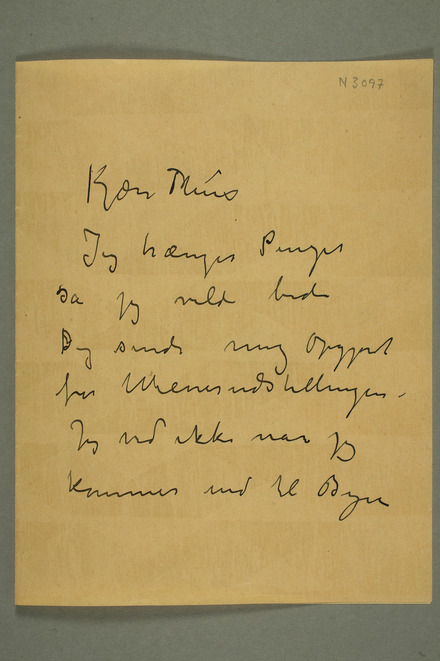 N 3097
Kjære Thiis
Jeg trænger Penger
så jeg vilde bede
Dig sende mig Opgjør
for Wienerudstillingen.
Jeg ved ikke når jeg
kommer ind til Byen